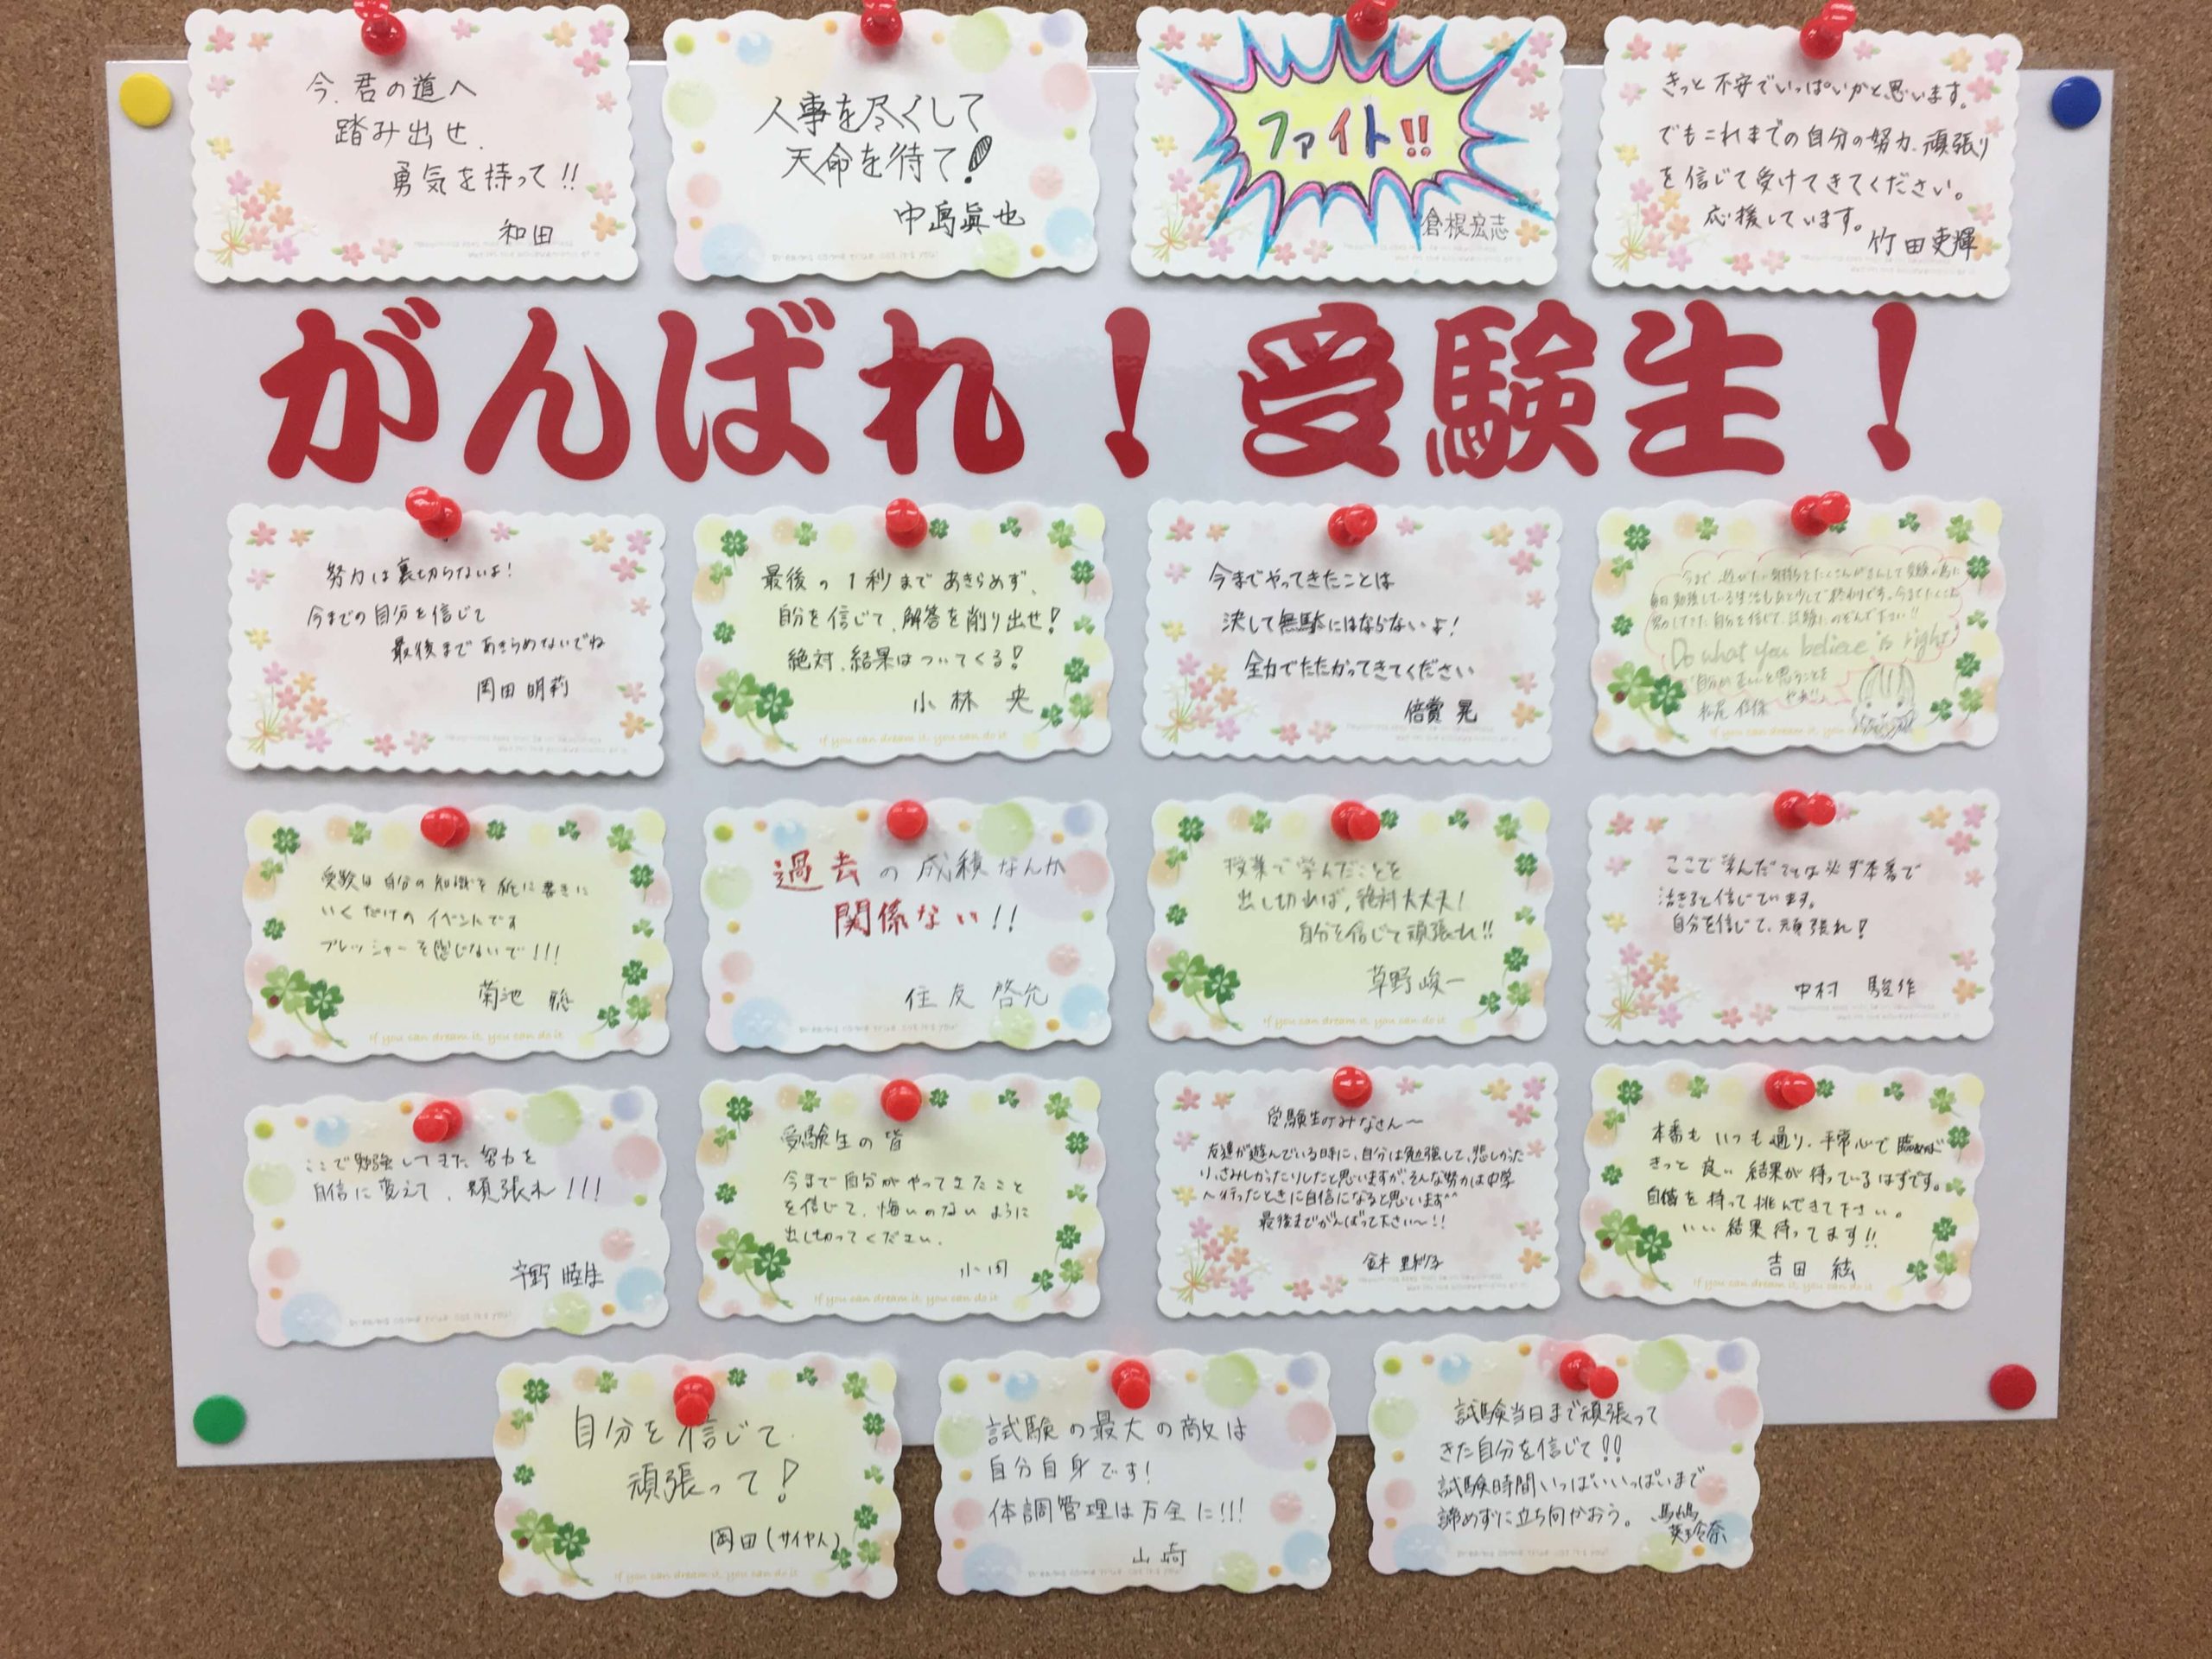 今、君の道へ
踏み出せ、
勇気を持って!!
和田
人事を尽くして
天命を待て!
中島眞也
ファイト!!
倉根宏志
きっと不安でいっぱいかと思います。
でもこれまでの自分の努力、頑張り
を信じて受けてきてください。
応援しています。
竹田吏輝
がんばれ!受験生!
努力は裏切らないよ!
今までの自分を信じて
最後まであきらめないでね
岡田明莉
最後の1秒まであきらめず、
自分を信じて、解答を削り出せ!
絶対、結果はついてくる!
小林 央
If you can dream it, you can do it
今までやってきたことは
決して無駄にはならないよ!
全力でたたかってきてください
倍賞 晃
Do what you believe is right
自分が正しいと思うことを
やれ!!
If you can dream it, you can do it
受験は自分の知識を紙に書きに
いくだけのイベントです
プレッシャーを感じないで!!!
菊池 聡
If you can dream it, you can do it
過去の成績なんか
関係ない!!
住友 啓允
授業で学んだことを
出し切れば、絶対大丈夫!
自分を信じて頑張れ!!
草野峻一
If you can dream it, you can do it
ここで学んだことは必ず本番で
活きると信じています。
自分を信じて、頑張れ!
中村 駿作
ここで勉強してきた努力を
自信に変えて、頑張れ!!!
宇野
受験生の皆
今まで自分がやってきたこと
を信じて、悔いのないように
出し切ってください。
小田
If you can dream it, you can do it
受験生のみなさん〜
友達が遊んでいる時に、自分は勉強して、悲しかった
り、さみしかったりしたと思いますが、そんな努力は中学
へ行ったときに自信になると思います^^
最後までがんばって下さい〜!!
本番もいつも通り、平常心で臨めば
きっと良い結果が待っているはずです。
自信を持って挑んできて下さい。
いい結果待ってます!!
吉田 紘
If you can dream it, you can do it
自分を信じて
頑張って!
岡田(サイヤ人)
If you can dream it, you can do it
試験の最大の敵は
自分自身です!
体調管理は万全に!!!
山崎
試験当日まで頑張って
きた自分を信じて!!
試験時間いっぱいいっぱいまで
諦めずに立ち向かおう。
馬嶋
英玲奈